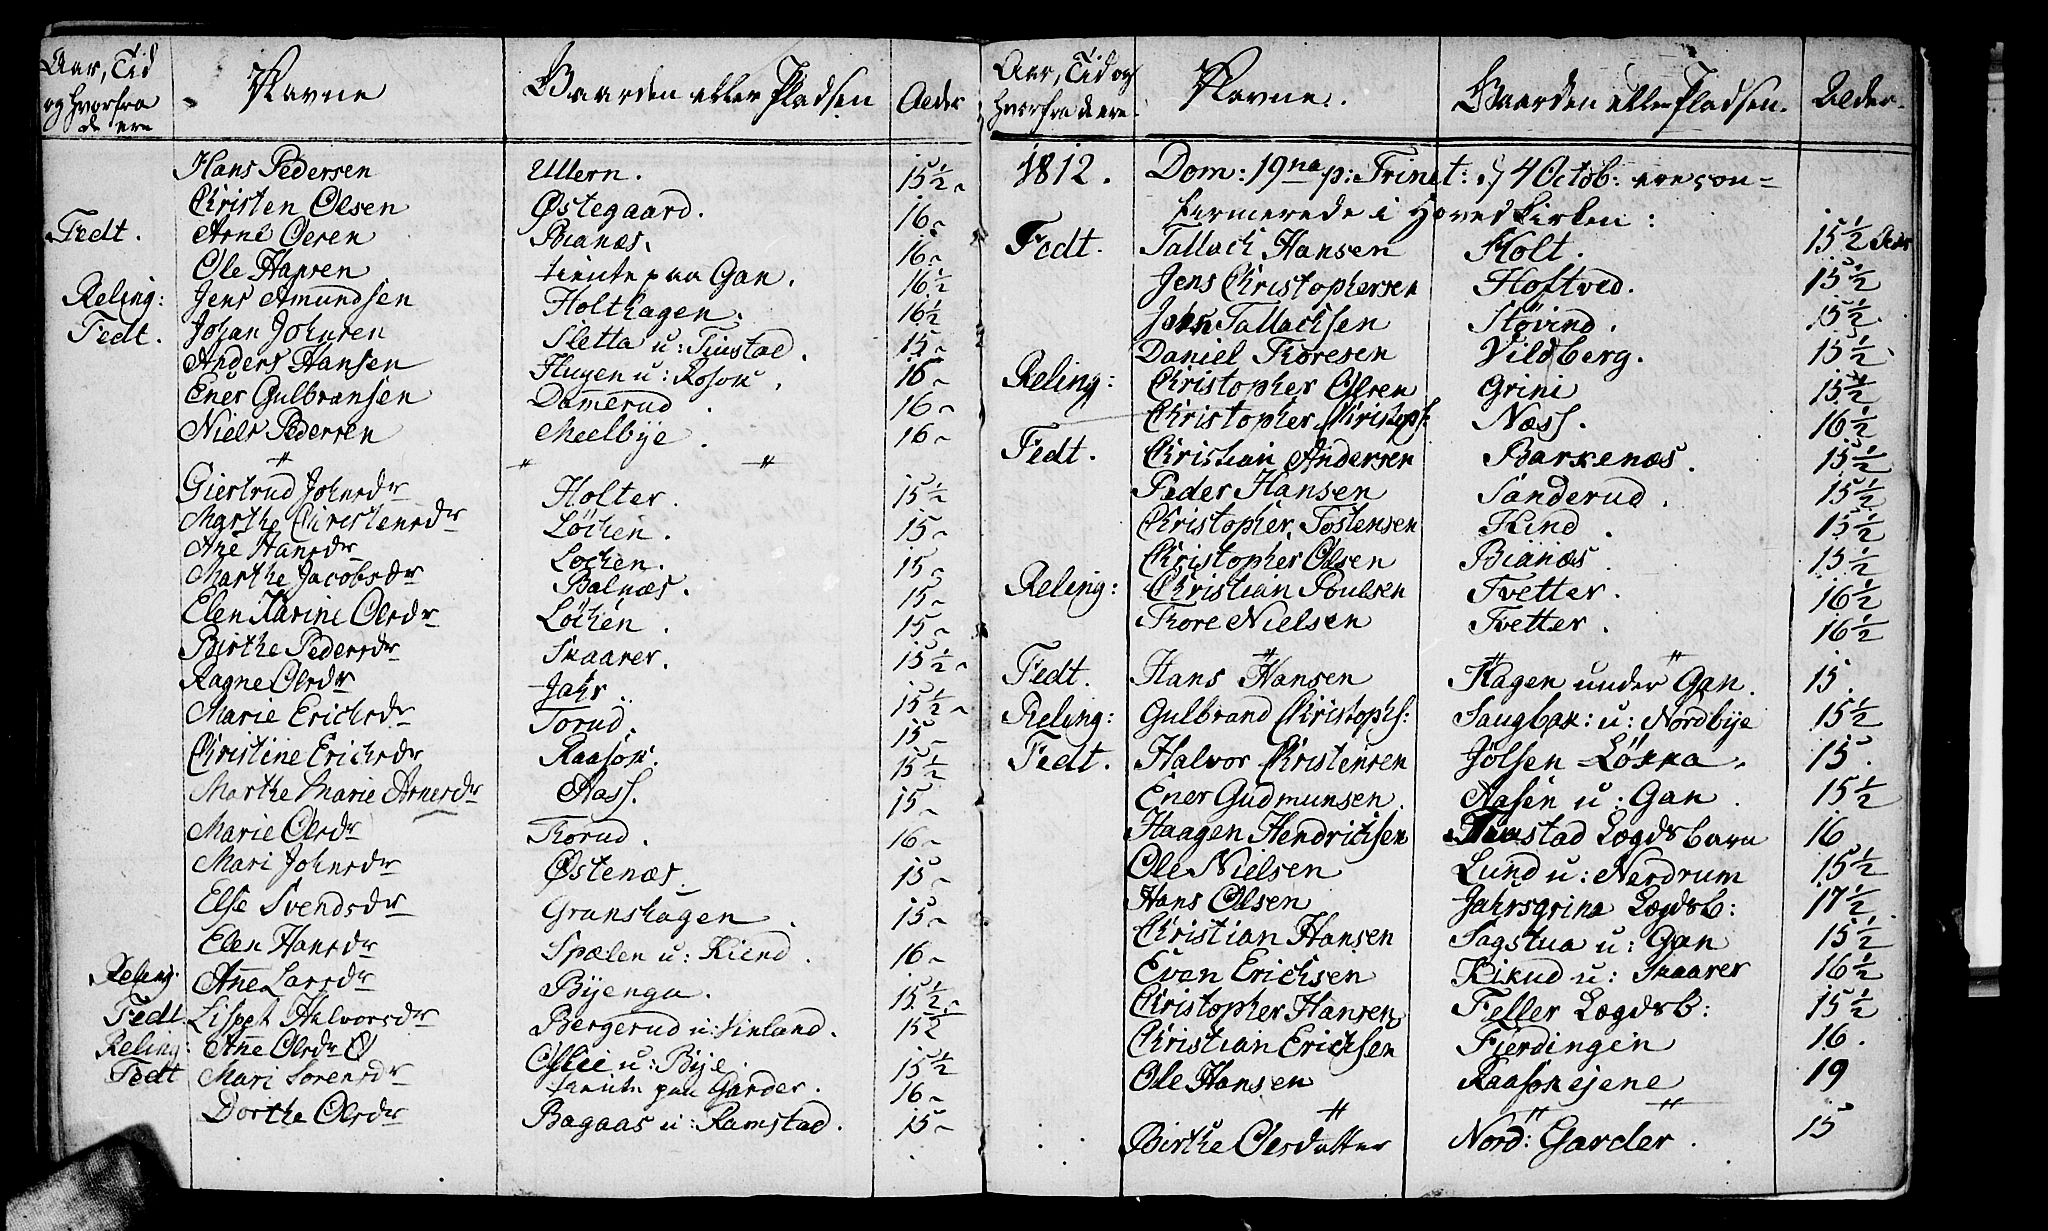 Aar, Tid og hvorfra de ere | Navne | Gaarden eller Pladsen | Alder
Hans Pedersen | Ullern. | 15½
Christen Olsen | Østegaard. | 16
Fedt. | Arne Olsen | Bianæs. | 16
Ole Hansen | tiente paa Gan. | 16½
Reling: | Jens Amundsen | Holthagen. | 16½
Fedt. | Johan Johnsen | Sletta u: Tiustad. | 15
Anders Hansen | Hugen u: Rosok. | 16
Ener Gulbransen | Damerud. | 16
Niels Pedersen | Meelbye. | 16
Giertrud Johnsdr | Holter. | 15½
Marthe Christensdr | Løchen. | 15
Ane Hansdr | Lochen. | 15
Marthe Jacobsdr | Balnæs. | 15
Elen Karine Olsdr | Løchen. | 15
Birthe Pedersdr | Skaarer. | 15½
Ragne Olsdr | Jahr. | 15½
Marie Erichsdr | Torud. | 15
Christine Erichsdr | Raasok. | 15½
Marthe Marie Arnesdr | Aass. | 15
Marie Olsdr | Torud. | 16
Mari Johnsdr | Østenæs. | 15
Else Svendsdr | Granshagen. | 15
Elen Hansdr | Spælen u: Kiend. | 16
Reling. | Anne Larsdr | Byenga. | 15½
Fedt. | Lisbet Halvorsdr | Bergerud u: Finland. | 15½
Reling: | Anne Olsdr | u: Bye. | 15½
Fedt | Mari Sorensdr | tiente paa Garder. | 16
Dorthe Olsdr | Bagaas u: Ramstad. | 15
Aar, Tid og hvorfra de ere. | Navne. | Gaarden eller Pladsen. | Alder.
1812. | Dom: 19na p: Trinet: d 4 Octob: ere con-
firmerede i Hovedkirken:
Fedt. | Tallach Hansen | Holt. | 15½ Aar
Jens Christophersen | Hoftved. | 15½
John Tallachsen | Støvind. | 15½
Daniel Thoresen | Vildberg. | 15½
Reling: | Christopher Olsen | Grini | 15½
Christopher Christophs: | Næss. | 16½
Fedt. | Christian Andersen | Barkenæs. | 15½
Peder Hansen | Sanderud. | 15½
Christopher Tostensen | Kind. | 15½
Christopher Olsen | Bianæs. | 15½
Reling: | Christian Poulsen | Tvetter. | 16½
Thore Nielsen | Tvetter. | 16½
Fedt. | Hans Hansen | Hagen under Gan. | 15.
Reling: | Gulbrand Christophs: | Saugbak: u: Nordbye | 15½
Fedt. | Halvor Christensen | Jølsen Løkka. | 15.
Ener Gudmunsen. | Aasen u: Gan. | 15½
Haagen Hendrichsen | Tiustad Lægdsbarn | 16
Ole Nielsen | Lund u: Nerdrum | 15½
Hans Olsen | Jahrsgrina Lægdsb: | 17½
Christian Hansen | Sagstua u: Gan | 15½
Even Erichsen | Kikud u: Skaarer | 16½
Christopher Hansen | Feller Lægdsb: | 15½
Christian Erichsen | Fierdingen | 16.
Ole Hansen | Raasokejene | 19
Birthe Olsdatter | Nord: Garder. | 15